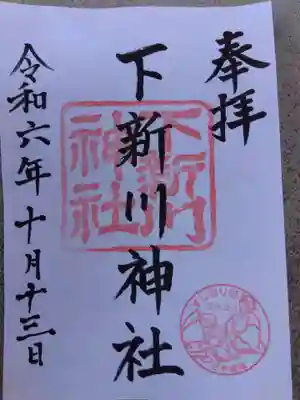 奉拝
下新川神社
下新川
神社
令和六年十月十三日